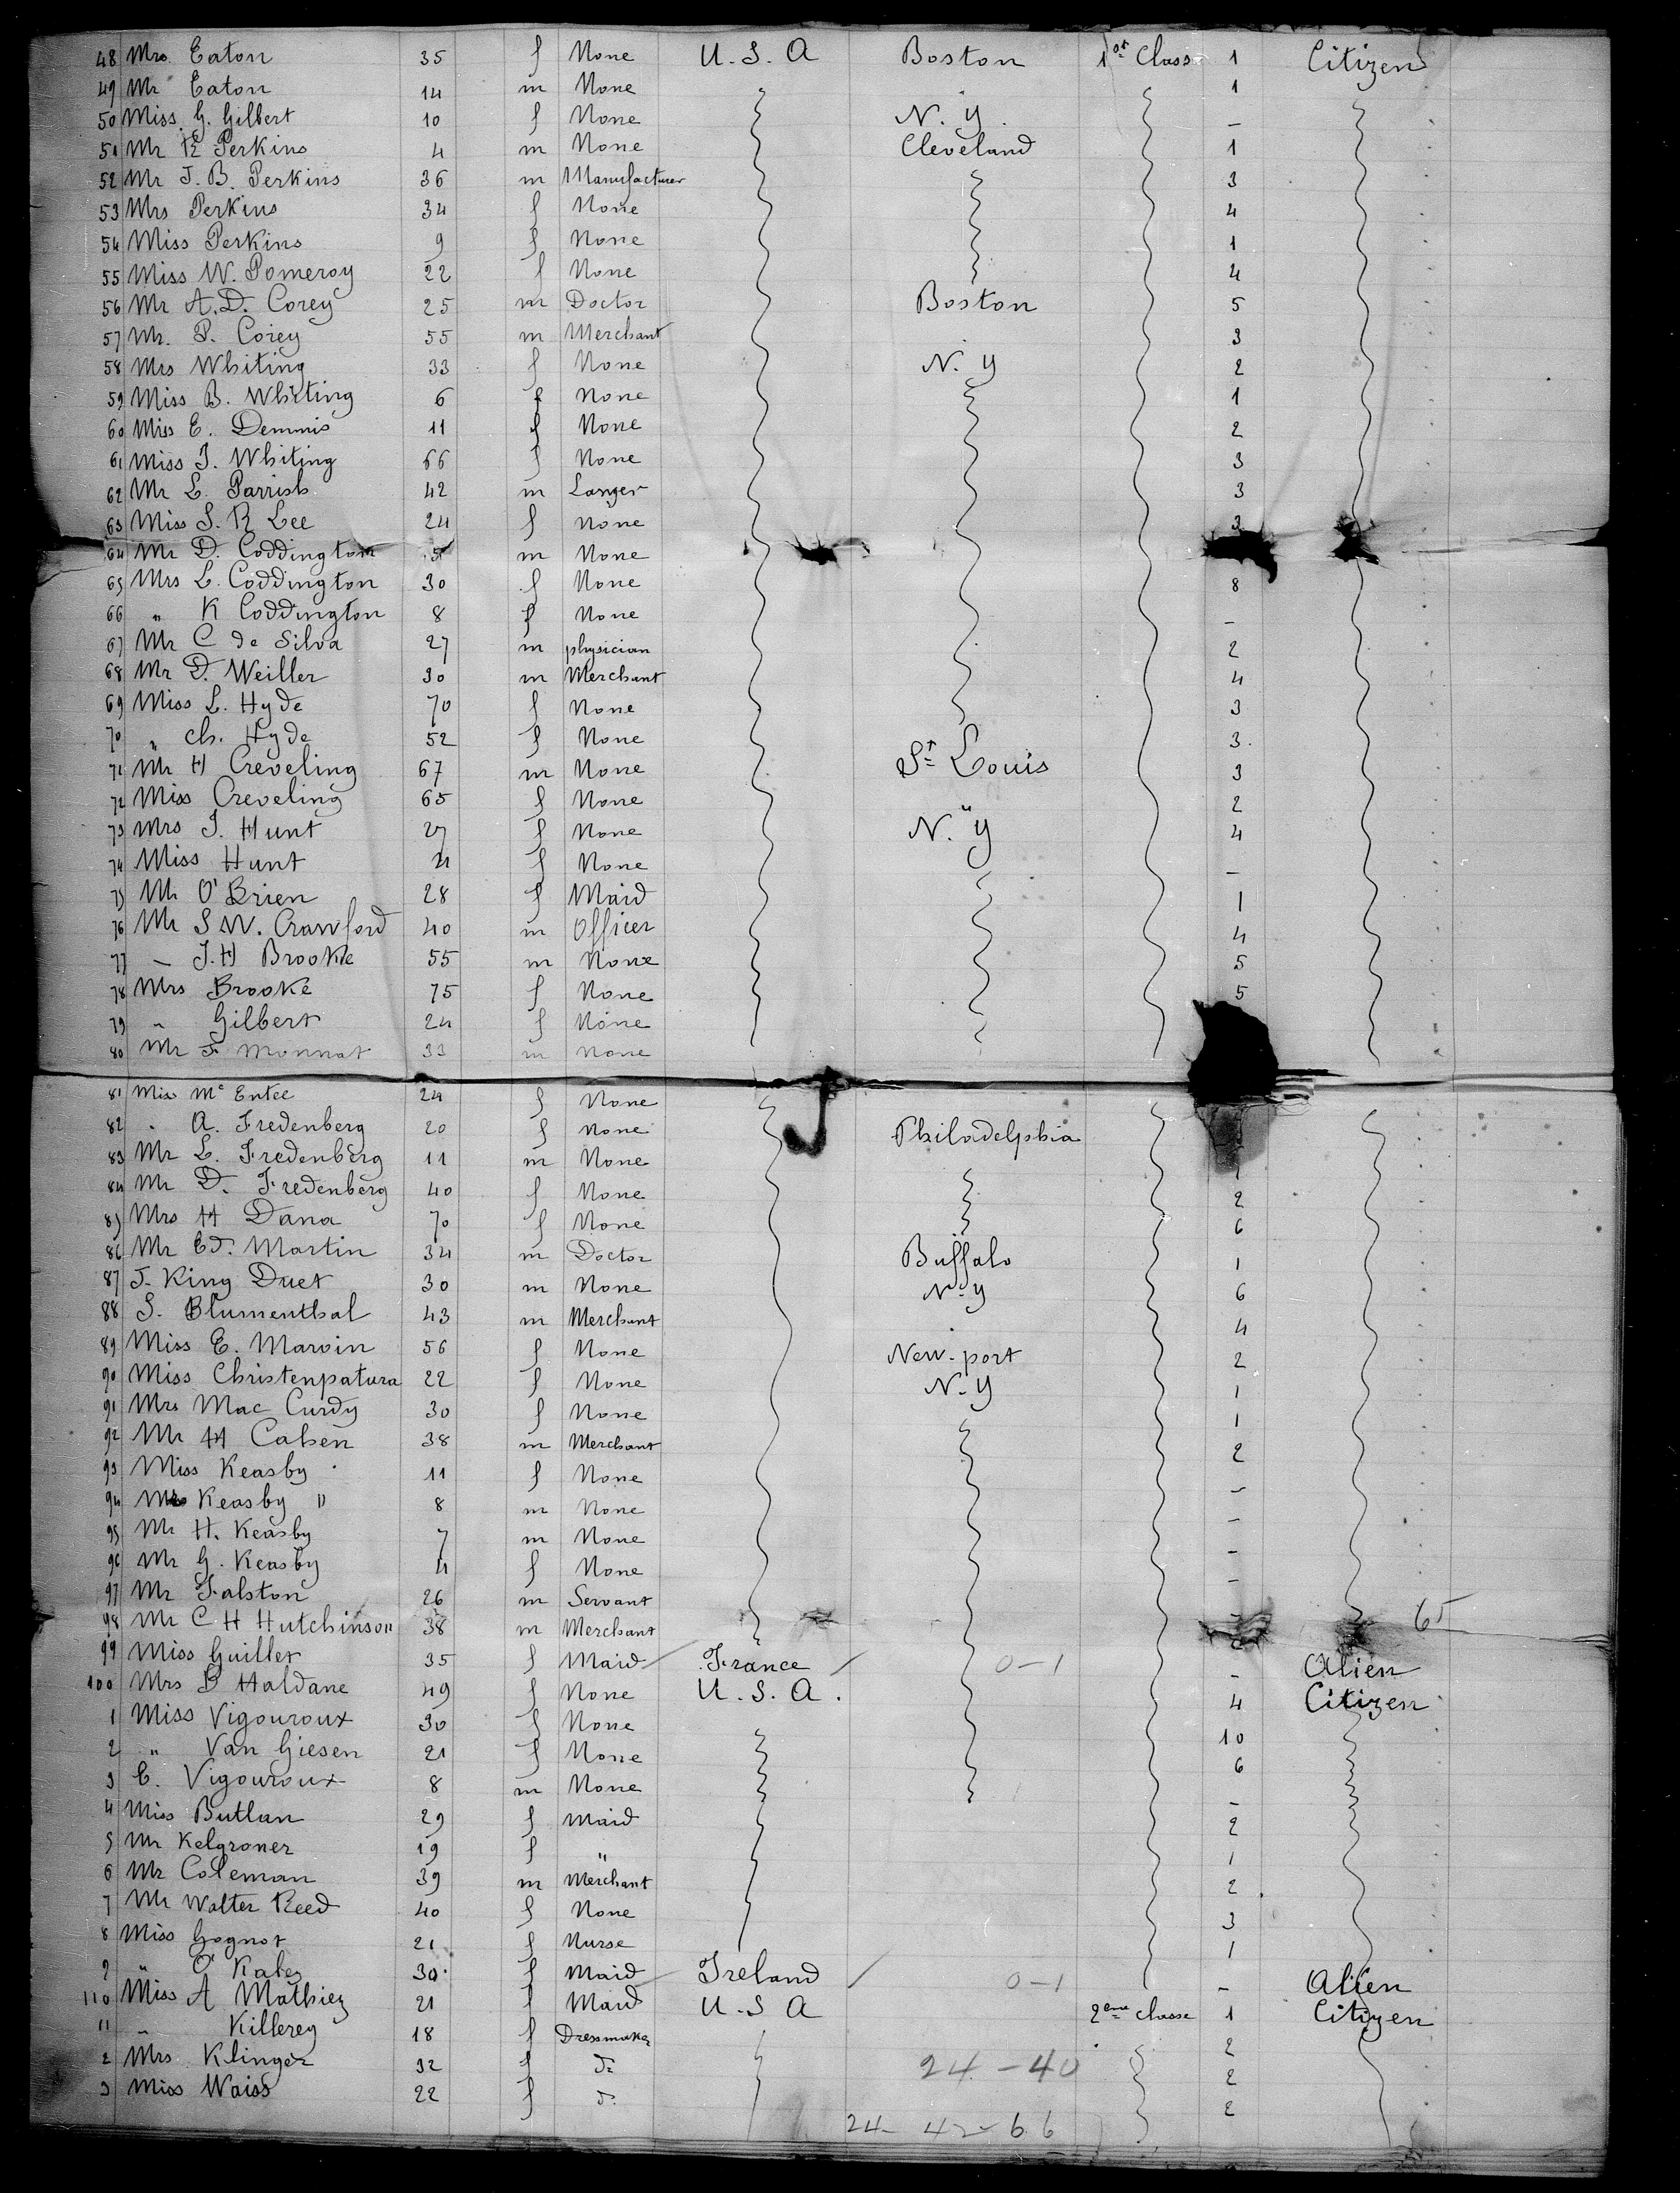 48 Mrs Eaton 35 f None U.S.A Boston 1st Class 1 Citizen
49 Mr Eaton 14 m None " 1
50 Miss G. Gilbert 10 f None N.Y. –
51 Mr E Perkins 4 m None Cleveland 1
52 Mr J.B. Perkins 36 m Manufacturer 3
53 Mrs Perkins 34 f None 4
54 Miss Perkins 9 f None 1
55 Miss W. Pomeroy 22 f None 4
56 Mr A.D. Corey 25 m Doctor Boston 5
57 Mr. P. Corey 55 m Merchant " 3
58 Mrs Whiting 33 f None N.Y 2
59 Miss B. Whiting 6 f None 1
60 Miss E. Demmis 11 f None 2
61 Miss J. Whiting 66 f None 3
62 Mr L. Parrish 42 m Lawyer 3
63 Miss S. R Lee 24 f None 3
64 Mr D. Coddington 5 m None
65 Mrs L. Coddington 30 f None 8
66 " K Coddington 8 f None –
67 Mr C de Silva 27 m physician 2
68 Mr D. Weiller 30 m Merchant 4
69 Miss L. Hyde 70 f None 3
70 " Ch. Hyde 52 f None 3
71 Mr H Creveling 67 m None St Louis 3
72 Miss Creveling 65 f None " 2
73 Mrs J. Hunt 27 f None N.Y 4
74 Miss Hunt 4 f None –
75 Mr O'Brien 28 f Maid 1
76 Mr S W. Crawford 40 m Officer 4
77 – J.H Brooke 55 m None 5
78 Mrs Brooke 75 f None 5
79 " Gilbert 24 f None
80 Mr F Monnat 33 m None
81 Miss Mc Entee 24 f None
82 " A. Fredenberg 20 f None Philadelphia
83 Mr L. Fredenberg 11 m None 1
84 Mr D. Fredenberg 40 f None 2
85 Mrs H Dana 70 f None 6
86 Mr Ed. Martin 34 m Doctor Buffalo 1
87 J. King Duet 30 m None N.Y 6
88 S. Blumenthal 43 m Merchant " 4
89 Miss E. Marvin 56 f None New-port 2
90 Miss Christenpatura 22 f None N.Y 1
91 Mrs Mac Curdy 30 f None 1
92 Mr H Cahen 38 m Merchant 2
93 Miss Keasby 11 f None –
94 Mr Keasby " 8 m None –
95 Mr H. Keasby 7 m None –
96 Mr G. Keasby 4 f None –
97 Mr Falston 26 m Servant –
98 Mr C H Hutchinson 38 m Merchant 65
99 Miss Guillet 35 f Maid France 0–1 – Alien
100 Mrs D Haldane 49 f None U.S.A. 4 Citizen
1 Miss Vigouroux 30 f None 10
2 " Van Giesen 21 f None 6
3 E. Vigouroux 8 m None –
4 Miss Butlan 29 f Maid 2
5 Mr Kelgroner 19 f " 1
6 Mr Coleman 39 m Merchant 2
7 Mr Walter Reed 40 f None 3
8 Miss Gognot 21 f Nurse 1
9 " O'Kaley 30 f Maid Ireland 0–1 – Alien
110 Miss A Mathiez 21 f Maid U.S A 2eme Classe 1 Citizen
11 " Killerey 18 f Dressmaker 2
2 Mrs Klinger 32 f do 24–40 2
3 Miss Waiss 22 f do 2
24– 42–66